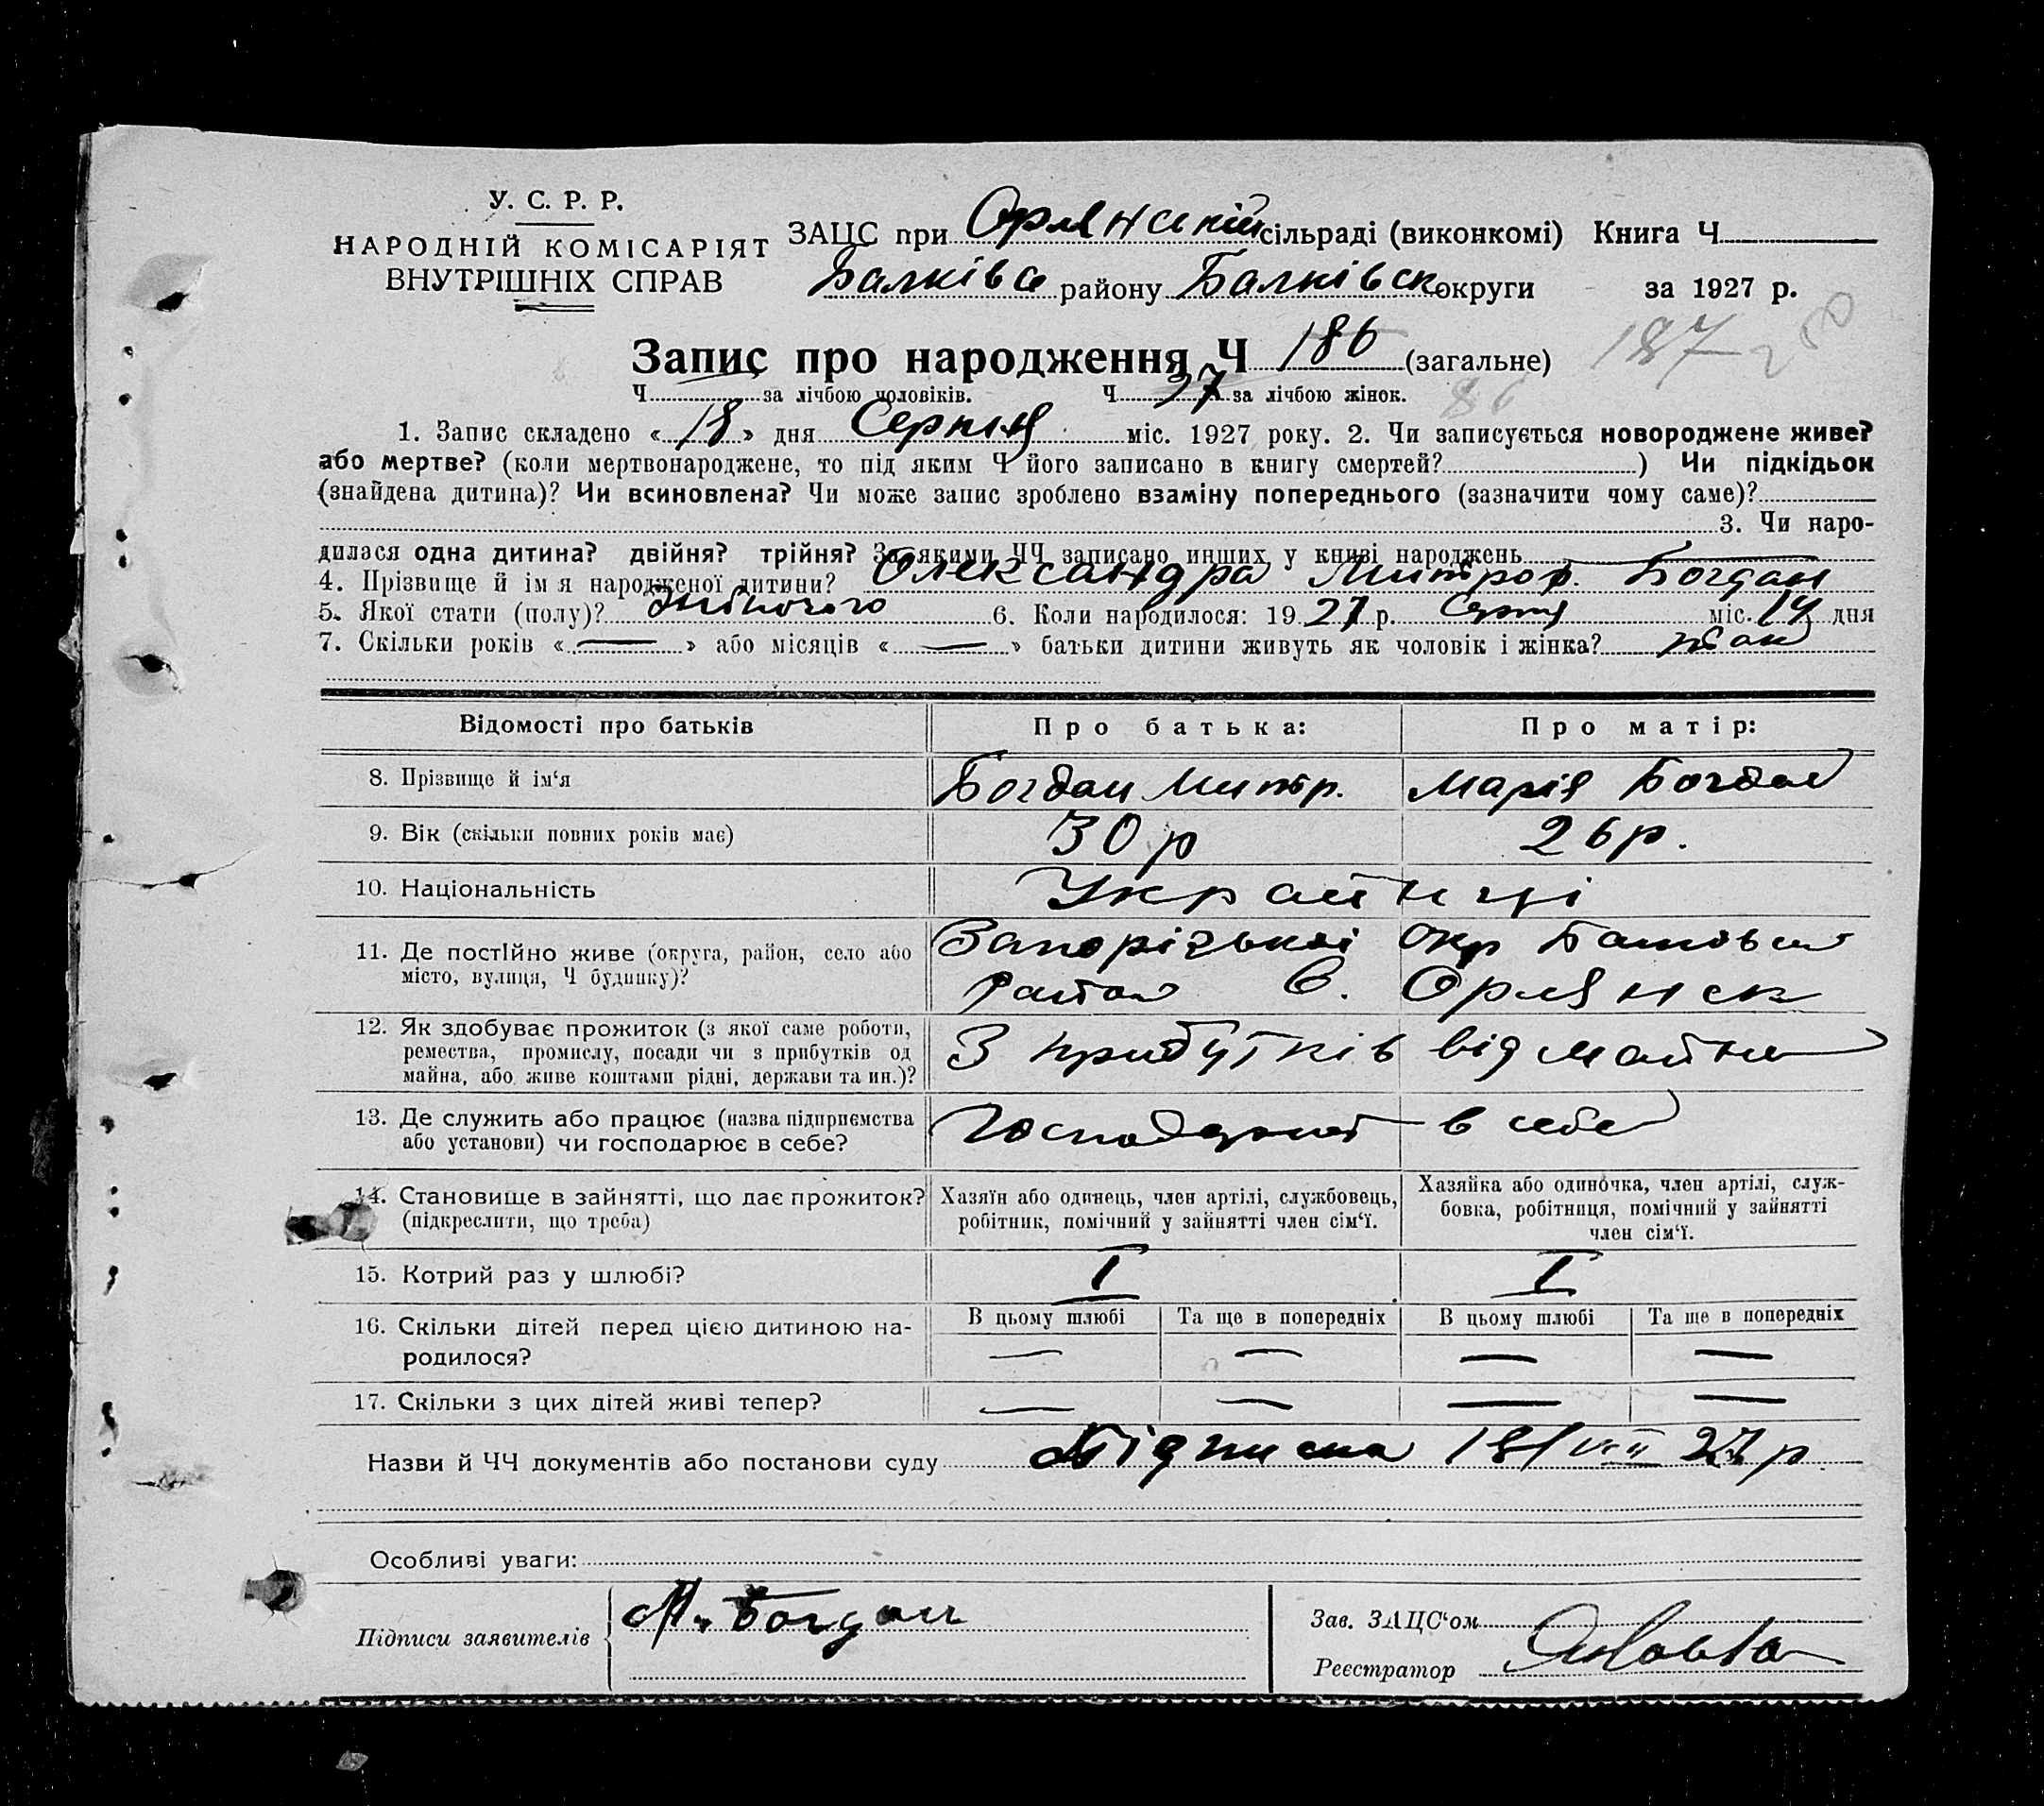 У. С. Р. Р.
НАРОДНІЙ КОМІСАРІЯТ
ВНУТРІШНІХ СПРАВ
ЗАЦС при Орлянській сільраді (виконкомі) Книга Ч.
Балківс району Балківск округи за 1927 р.
Запис про народження Ч 186 (загальне) 187
Ч. за лічбою чоловіків. Ч. 97 за лічбою жінок. 86
1. Запис складено « 18 » дня Серпня міс. 1927 року. 2. Чи записується новороджене живе?
або мертве? (коли мертвонароджене, то під яким Ч його записано в книгу смертей? ) Чи підкідьок
(знайдена дитина)? Чи всиновлена? Чи може запис зроблено взаміну попереднього (зазначити чому саме)?
3. Чи наро-
дилася одна дитина? двійня? трійня? За якими ЧЧ записано инших у книзі народжень
4. Прізвище й імя народженої дитини? Олександра Митроф. Богдан
5. Якої стати (полу)? Жіночого 6. Коли народилося: 1927 р. Серпня міс. 14 дня
7. Скільки років « — » або місяців « — » батьки дитини живуть як чоловік і жінка? так
Відомості про батьків Про батька: Про матір:
8. Прізвище й ім'я Богдан Митр. Марія Богдан
9. Вік (скільки повних років має) 30 р 26 р.
10. Національність Українці
11. Де постійно живе (округа, район, село або
місто, вулиця, Ч будинку)?
Запорізької окр Балківськ
район С. Орлянск
12. Як здобуває прожиток (з якої саме роботи,
ремества, промислу, посади чи з прибутків од
майна, або живе коштами рідні, держави та ин.)?
З прибутків від майна
13. Де служить або працює (назва підприємства
або установи) чи господарює в себе?
Господарюют в себе
14. Становище в зайнятті, що дає прожиток?
(підкреслити, що треба)
Хазяїн або одинець, член артілі, службовець,
робітник, помічний у зайнятті член сім'ї.
Хазяйка або одиночка, член артілі, служ-
бовка, робітниця, помічний у зайнятті
член сім'ї.
15. Котрий раз у шлюбі? I I
16. Скільки дітей перед цією дитиною на-
родилося?
В цьому шлюбі Та ще в попередніх В цьому шлюбі Та ще в попередніх
— — — —
17. Скільки з цих дітей живі тепер? — — — —
Назви й ЧЧ документів або постанови суду Підписка 18/VIII 27 р.
Особливі уваги:
Підписи заявителів М. Богдан
Зав. ЗАЦС'ом
Реєстратор